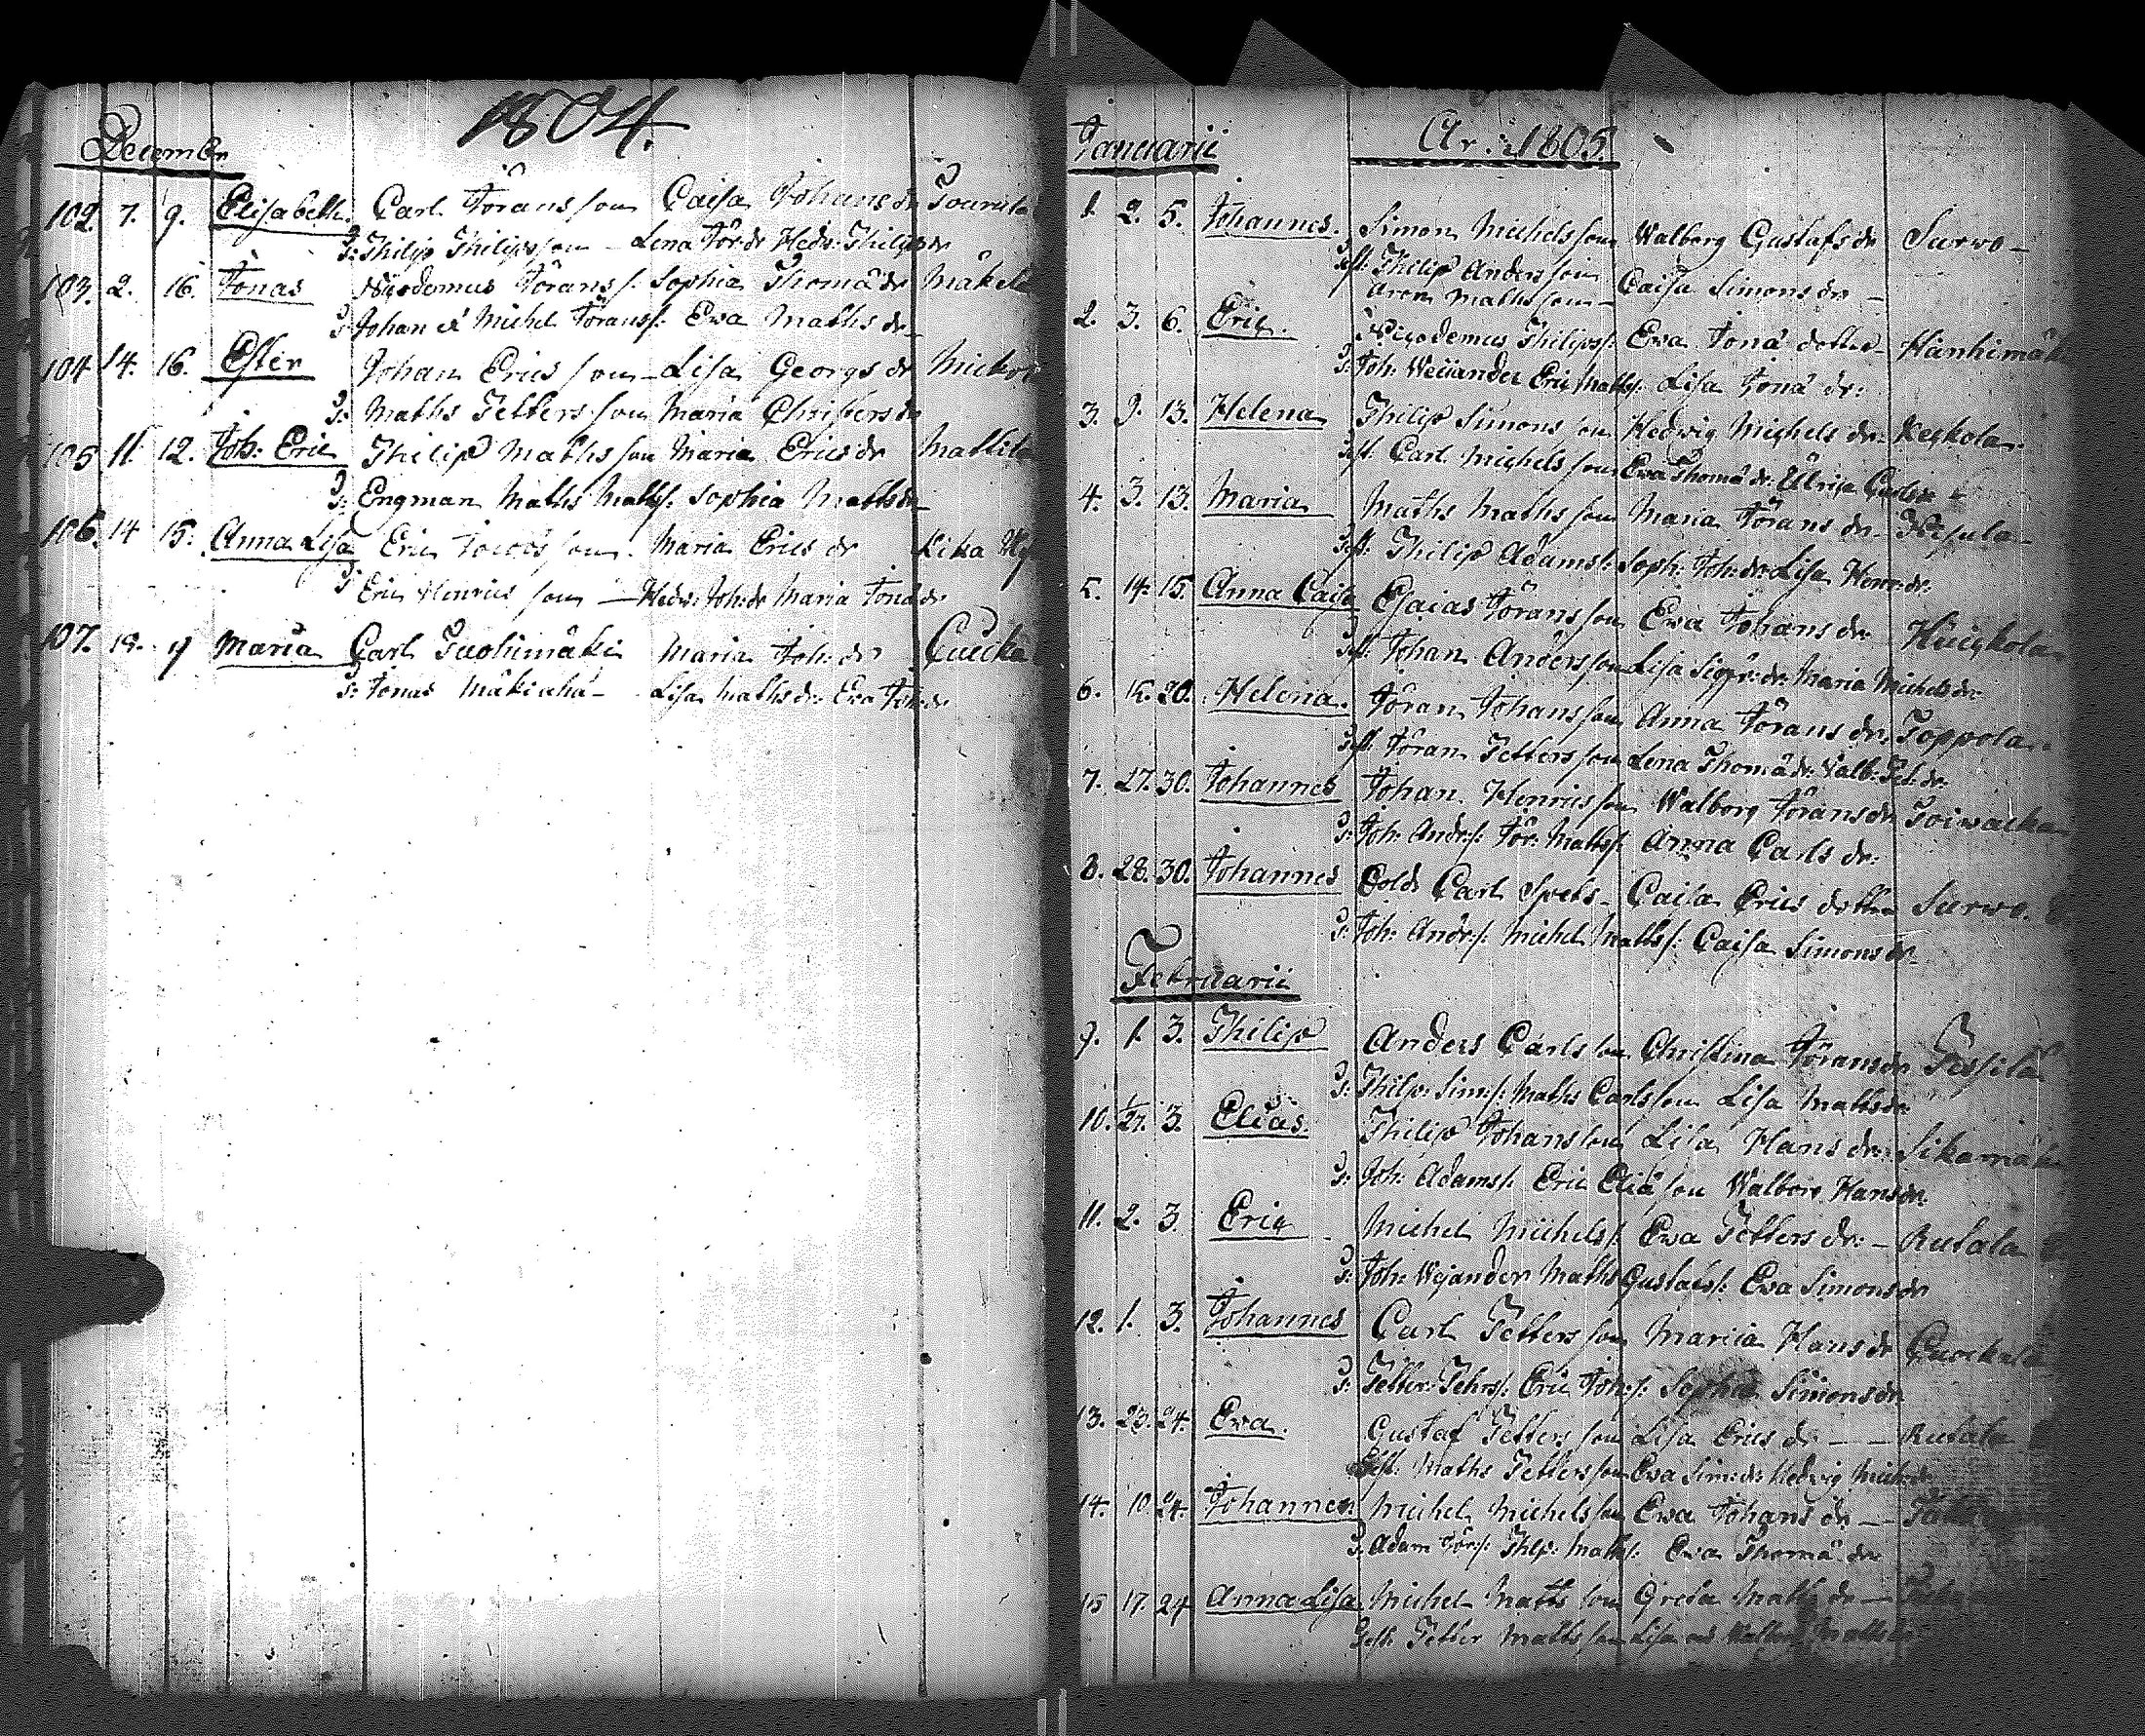 1804.
December
102. 7. 9. Elisabeth. Carl Jöransson Caisa Johansdr
g: Philip Philipsson – Lena Jör:dr Hedv: Philipsdr
103. 2. 16. Jonas Nicodemus Jörans/: Sophia Thomædr Mäkelä
g: Johan & Michel Jörans/: Ewa Mathsdr
104 14. 16. Ester Johan Ericsson – Lisa Georgsdr
g: Maths Pettersson Maria Christersdr
105 11. 12. Joh: Eric Philip Mathsson Maria Ericsdr Mattila
g: Engman Maths Maths/: Sophia Mathsdr
106. 14 15. Anna Lisa Eric son. Maria Ericsdr
g: Eric Henricsson – Hedv: Joh:dr Maria Jonædr
107. 18. Maria Carl Tuohimäki Maria Joh:dr
g: Jonas – Lisa Mathsdr: Ewa Joh:dr
Januarii År: 1805.
1. 2. 5. Johannes. Simon Michelsson Walborg Gustafsdr Surwo –
Test: Philip Andersson
Aron Mathsson – Caisa Simonsdr –
2. 3. 6. Eric. Nicodemus Philips/: Ewa Jonæ dotter – Hanhimäk
g: Joh: Weijander Eric Maths/: Lisa Jonædr:
3. 9. 13. Helena Philip Simonsson Hedwig Michelsdr: Keskola.
Test: Carl Michelsson Ewa Thomædr: Ullrica Carlsdr
4. 3. 13. Maria Maths Mathsson Maria Jöransdr –
Test: Philip Adams/: Soph: Joh:dr: Lisa Henr:dr:
5. 14. 15. Anna Caisa Esaias Jöransson Ewa Johansdr
Test: Johan Andersson Lisa Sigfr:dr: Maria Michelsdr:
6. 20. Helena. Jöran Johansson Anna Jöransdr: Toppola.
Test: Jöran Pettersson Lena Thomædr: Valb: Pet:dr:
7. 27. 30. Johannes Johan Henricsson Walborg Jöransdr Toiwacka
g: Joh: Andr:/: Jör: Maths/: Anna Carlsdr:
8. 28. 30. Johannes Sold: Carl Spets – Caisa Erics dotter Surwo.
g: Joh: Andr:/: Michel Maths/: Caisa Simonsdr
Februarii
9. 1. 3. Philip Anders Carlsson Christina Jöransdr
g: Philip: Sim:/: Maths Carlsson Lisa Mathsdr
10. 3. Elias. Philip Johansson Lisa Hansdr: Sikamäki
g: Joh: Adams/: Eric Eliæson Walborg Hansdr.
11. 2. 3. Eric Michel Michels/: Ewa Pettersdr: – Rutala
g: Joh: Weijander Maths Gustafs/: Ewa Simonsdr
12. 1. 3. Johannes Carl Pettersson Maria Hansdr
g: Petter Pehrs/: Eric Joh:/: Sophia Simonsdr
13. 23. 24. Eva. Gustaf Pettersson Lisa Ericsdr – – Rutala
Test: Maths Pettersson Ewa Sim:dr: Hedvig Mich:dr
14. 10. 24. Johannes Michel Michelsson Ewa Johansdr –
g: Adam Jör:/: Philp: Maths/: Ewa Thomædr
15 17. 24 Anna Lisa Michel Mattsson Greta Mattsdr –
Test: Petter Mattsson Lisa